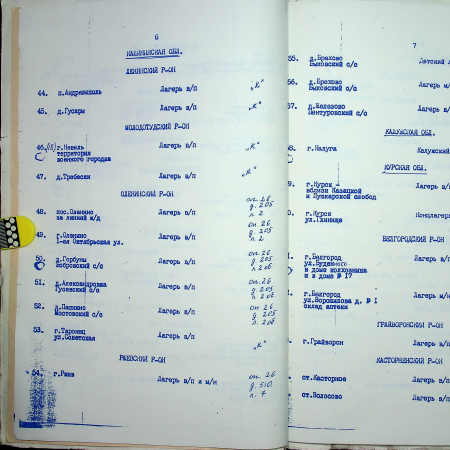 6
КАЛИНИНСКАЯ ОБЛ.
ЛЕНИНСКИЙ Р-ОН
44. п.Андреаполь Лагерь в/п "К"
45. д.Гусары Лагерь в/п "К"
МОЛОДОТУДСКИЙ Р-ОН
46. г.Невель Лагерь в/п "К"
территория
военного городка
47. д.Требески Лагерь в/п "К"
ОЛЕНИНСКИЙ Р-ОН
48. пос.Оленино Лагерь в/п оп. 26
за линией ж/д д. 205
л. 2
49. г.Оленино Лагерь в/п оп. 26
1-ая Октябрьская ул. д. 205
л. 2
50. д.Горбуны Лагерь в/п оп. 26
Бобровский с/с д. 205
л. 206
51. д.Александровка Лагерь в/п оп. 26
Гусевский с/с д. 205
л. 206
52. Лагерь в/п оп. 26
Мостовский с/с д. 205
л. 206
53. Лагерь в/п "К"
ул.Советская
РЖЕВСКИЙ Р-ОН
54. г.Ржев Лагерь в/п и м/н оп. 26
д. 510
л. 7
7
55. д.Брехово Детский
Быковский с/с
56. д.Брехово Лагерь
Быковский с/с
57. Лагерь в/п
с/с
КАЛУЖСКАЯ ОБЛ.
г.Калуга Калужский
КУРСКАЯ ОБЛ.
г.Курск Лагерь в/п
вблизи Казацкой
и Пушкарской слобод
г.Курск Концлагерь
ул.Глинище
БЕЛГОРОДСКИЙ Р-ОН
г.Белгород Лагерь в/п
ул.Буденного
в доме колхозника
и в доме № 17
г.Белгород Лагерь
ул.Ворошилова д. № 1
склад аптеки
ГРАЙВОРОНСКИЙ Р-ОН
г.Грайворон Лагерь
КАСТОРНЕНСКИЙ Р-ОН
ст.Касторное Лагерь в/п
ст.Волосово Лагерь